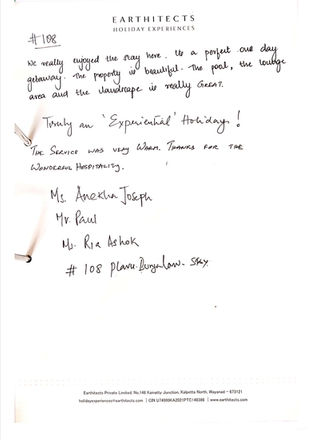 EARTHITECTS
HOLIDAY EXPERIENCES
#108
We really enjoyed the stay here. Its a perfect one day
getaway. The property is beautiful. The pool, the lounge
area and the landscape is really GREAT.
Truly an 'Experiential' Holiday!
THE SERVICE WAS VERY WARM. THANKS FOR THE
WONDERFUL HOSPITALITY.
Ms. Anekha Joseph
Mr. Paul
Ms. Ria Ashok
#108 Bungalow Stay
Earthitects Private Limited, No.146 Kainatty Junction, Kalpetta North, Wayanad – 673121
holidayexperiences@earthitects.com | CIN | www.earthitects.com